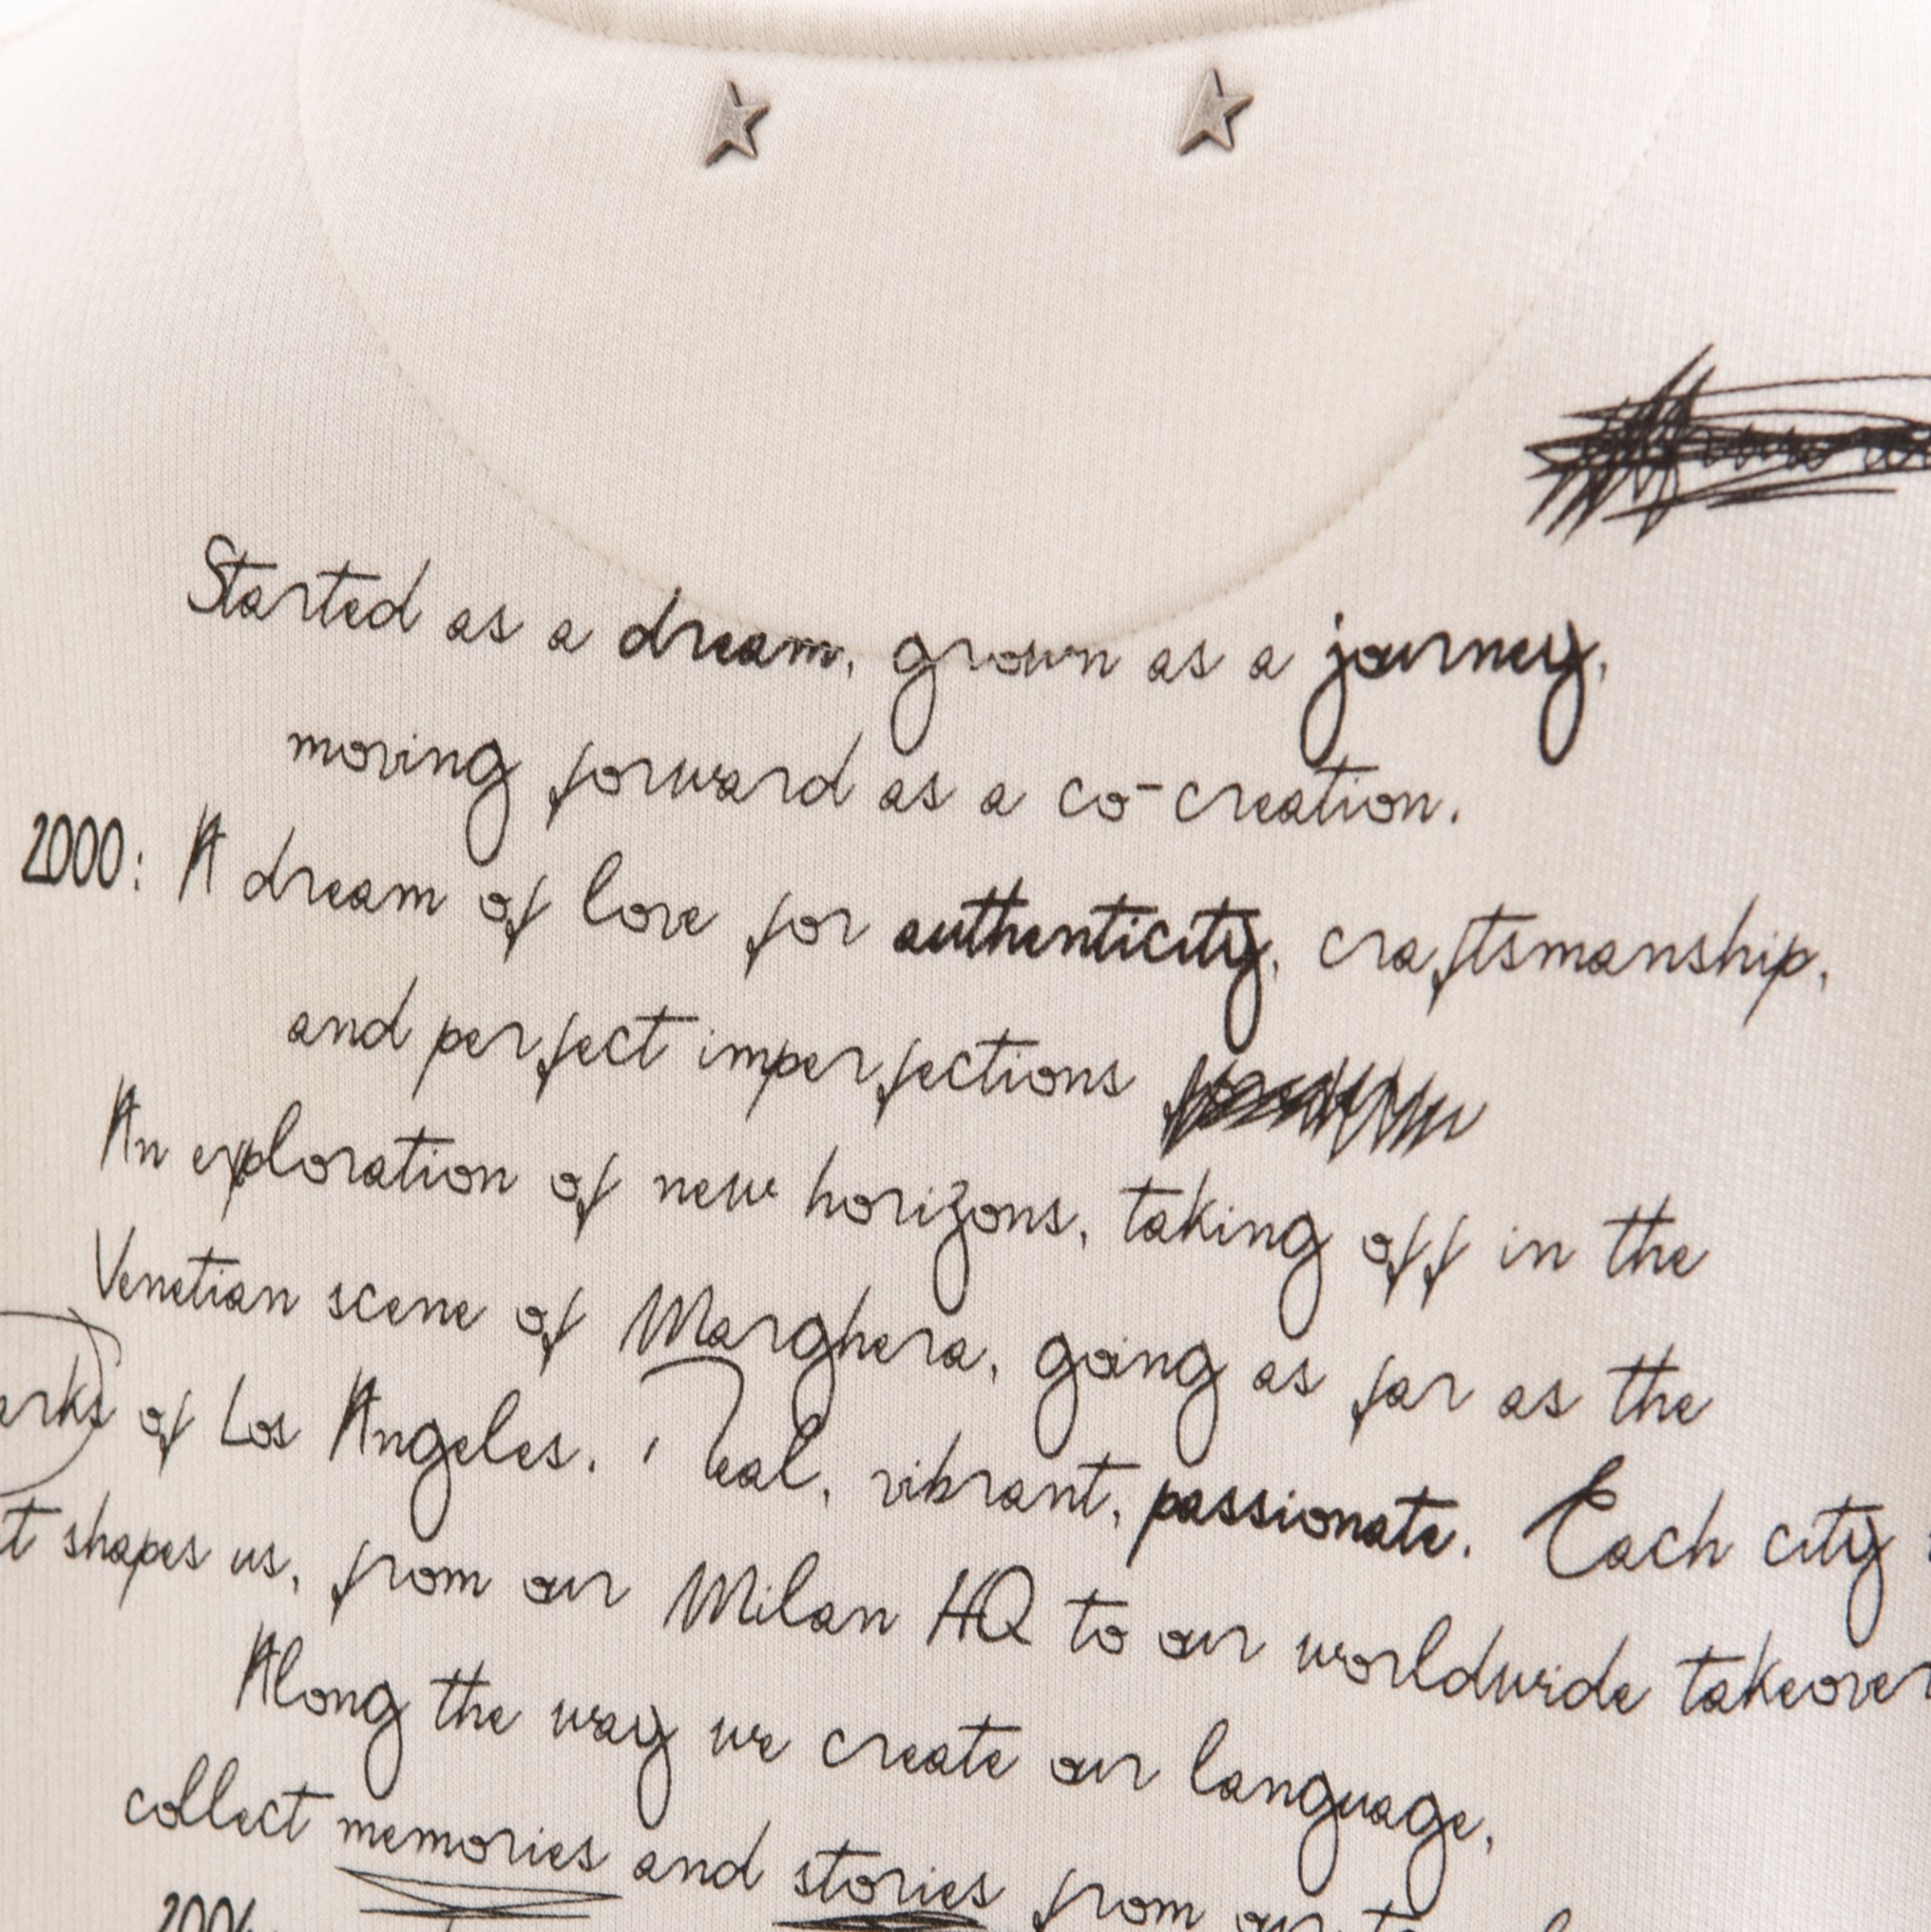 Started as a dream, grown as a journey,
moving forward as a co-creation.
2000: A dream of love for authenticity, craftsmanship,
and perfect imperfections
An exploration of new horizons, taking off in the
Venetian scene of Marghera, going as far as the
of Los Angeles. Real, vibrant, passionate. Each city
shapes us, from our Milan HQ to our worldwide takeover
Along the way we create our language,
collect memories and stories from our